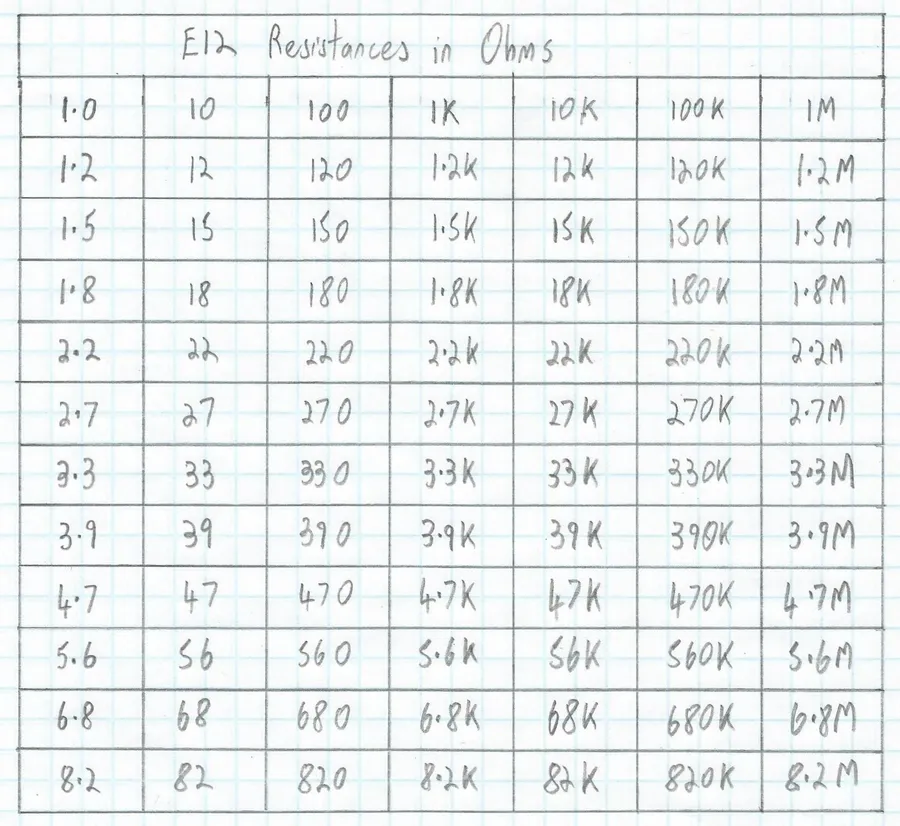 E12 Resistances in Ohms
1.0 10 100 1K 10K 100K 1M
1.2 12 120 1.2K 12K 120K 1.2M
1.5 15 150 1.5K 15K 150K 1.5M
1.8 18 180 1.8K 18K 180K 1.8M
2.2 22 220 2.2K 22K 220K 2.2M
2.7 27 270 2.7K 27K 270K 2.7M
3.3 33 330 3.3K 33K 330K 3.3M
3.9 39 390 3.9K 39K 390K 3.9M
4.7 47 470 4.7K 47K 470K 4.7M
5.6 56 560 5.6K 56K 560K 5.6M
6.8 68 680 6.8K 68K 680K 6.8M
8.2 82 820 8.2K 82K 820K 8.2M